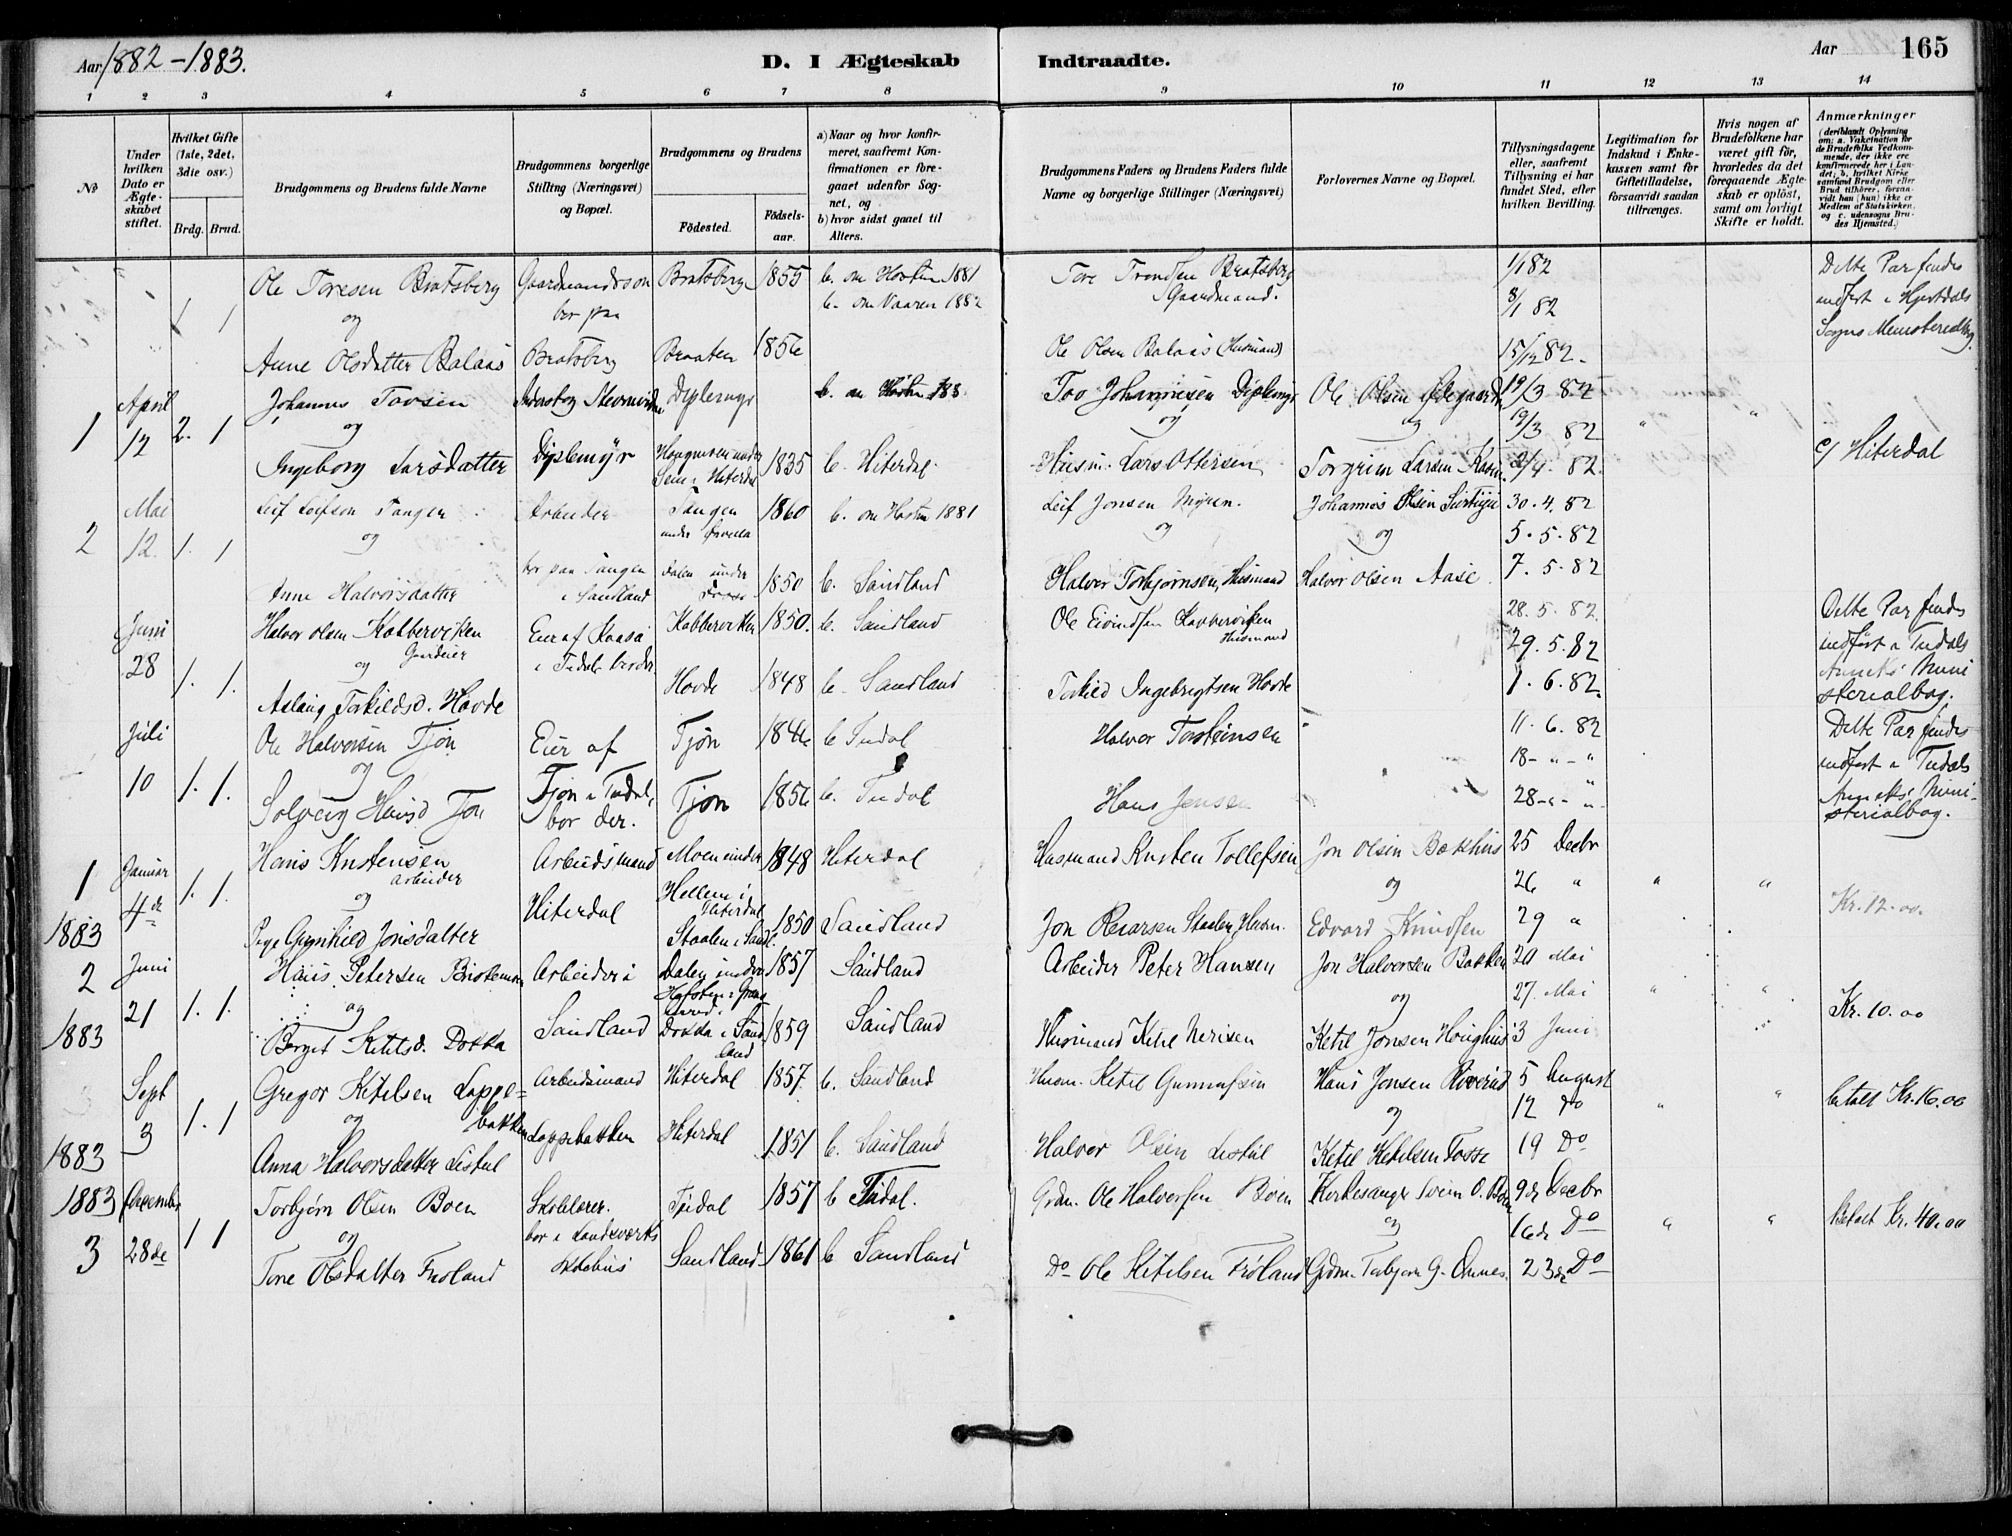 Aar 1882-1883.
D. I Ægteskab Indtraadte.
Aar 165
1 2 3 4 5 6 7 8 9 10 11 12 13 14
No
Under hvilken Dato er Ægteskabet stiftet.
Hvilket Gifte (1ste, 2det, 3die osv.)
Brdg. Brud.
Brudgommens og Brudens fulde Navne
Brudgommens borgerlige Stilling (Næringsvei) og Bopæl.
Brudgommens og Brudens
Födested. Födselsaar.
a) Naar og hvor konfirmeret, saafremt Konfirmationen er foregaaet udenfor Sognet, og
b) hvor sidst gaaet til Alters.
Brudgommens Faders og Brudens Faders fulde Navne og borgerlige Stillinger (Næringsvei)
Forlovernes Navne og Bopæl.
Tillysningsdagene eller, saafremt Tillysning ei har fundet Sted, efter hvilken Bevilling.
Legitimation for Indskud i Enkekassen samt for Giftetilladelse, forsaavidt saadan tiltrænges.
Hvis nogen af Brudefolkene har været gift för, hvorledes da det foregaaende Ægteskab er oplöst, samt om lovligt Skifte er holdt.
Anmærkninger
(deriblandt Oplysning om: a. Vakcination for de Brudefolks Vedkommende, der ikke ere konfirmerede her i Landet; b. hvilket Kirkesamfund Brudgom eller Brud tilhörer, forsaavidt han (hun) ikke er Medlem af Statskirken, og c. udensogns Brudes Hjemsted.)
1 1 Ole Toresen Bratsberg Gaardmandssøn Bratsberg 1855 b. om Høsten 1881 Tore Trondsen Bratsberg 1/1 82 Dette Par findes
og bor paa b. om Vaaren 1882 Gaardmand. 8/1 82 indført i Hjertdals
Anne Olsdatter Balaas Bratsberg Braaten 1856 Ole Olsen Balaas Husmand 15/ 82. Sogns Ministerialbog.
April Johannes Tovsen Diplemyr b. om Høsten 188 Tov Johannesen Diplemyr Ole Olsen Ødegaard 12/3 82
1 12 2. 1 og og og 19/3 82 " "
Ingeborg Larsdatter Diplemyr Haugmoen under Sem i Hiterdal 1835 b. Hiterdal. Husm. Lars Ottersen Torgrim Larsen 2/4. 82. c/ Hiterdal
Mai Leif Leifson Tangen Arbeider Tangen under 1860 b. om Høsten 1881 Leif Jonsen Myren. Johannes Olsen 30.4.82
2 12. 1. 1 og og og 5.5.82
Anne Halvorsdatter bor paa Tangen i Sandland Dalen under 1850 b. Sandland Halvor Torbjørnsen, Husmand Halvor Olsen Aase. 7.5.82
Juni Halvor Olsen Kobberviken Gaardeier Eier af Kaasa Kobberviken 1850. b. Sandland Ole Eivindsen Kobberviken Husmand 28.5.82. Dette Par findes
28 1. 1. og i Tudal bor der 29.5.82 indført i Tudals
Aslaug Torkildsd. Hovde Hovde 1848 b. Sandland Torkild Ingebrigtsen Hovde 1.6.82. Anneks' Ministerialbog.
Juli Ole Halvorsen Tjøn Eier af Tjøn 1846 b Tudal Halvor Torsteinsen 11.6.82 Dette Par findes
10 1. 1. og Tjøn i Tudal, 18-"-" indført i Tudals
Solveig Hansd Tjøn bor der. Tjøn 1856 b. Tudal Hans Jensen 28-"-" Anneks' Ministerialbog.
1 Januar Hans Kristensen arbeider Arbeidsmand Moen under 1848 Hiterdal Husmand Kristen Tollefsen Jon Olsen Bakkhus 25 Decbr
4de 1. 1. og Hiterdal Hellem i Hiterdal og 26 " " "
1883 Pige Gunhild Jonsdatter Staalen i Sandl. 1850 Sandland Jon Staalen, Husm. Edvard Knudsen 29 " Kr. 12.00.
2 Juni Hans Petersen Arbeider i Dalen under 1857 Sandland Arbeider Peter Hansen Jon Halversen Bakken 20 Mai
21 1. 1. og og 27. Mai " "
1883 Berget Ketilsd. Dokka Sandland Dokka i Sandland 1859 Sandland Husmand Ketil Ketil Jonsen Haughus 3 Juni Kr. 10.00
Sept Gregor Ketilsen Loppebakken Arbeidsmand Hiterdal 1857 b. Sandland Husm. Ketil Gunnulfsen Hans Jonsen 5 August
3 1. 1 og og 12 do " " betalt Kr. 16.00
1883 Anna Halvorsdatter Listul Loppebakken Hiterdal 1851 b. Sandland Halvor Olsen Listul Ketil Fosse 19 Do
1883 December Torbjørn Olsen Boen Skolelærer. Tudal 1857 b Tudal. Grdm. Ole Halvorsen Boen Kirkesanger Svein O. Boen 9de Decbr
3 28de 1 1 og bor i Landsværks og 16de Do " " Betalt Kr. 40.00
Tone Olsdatter Frøland Skolehus Sandland 1861 b Sandland Do Ole Ketelsen Frøland Grdm. Torbjørn G. Omnes. 23de Do